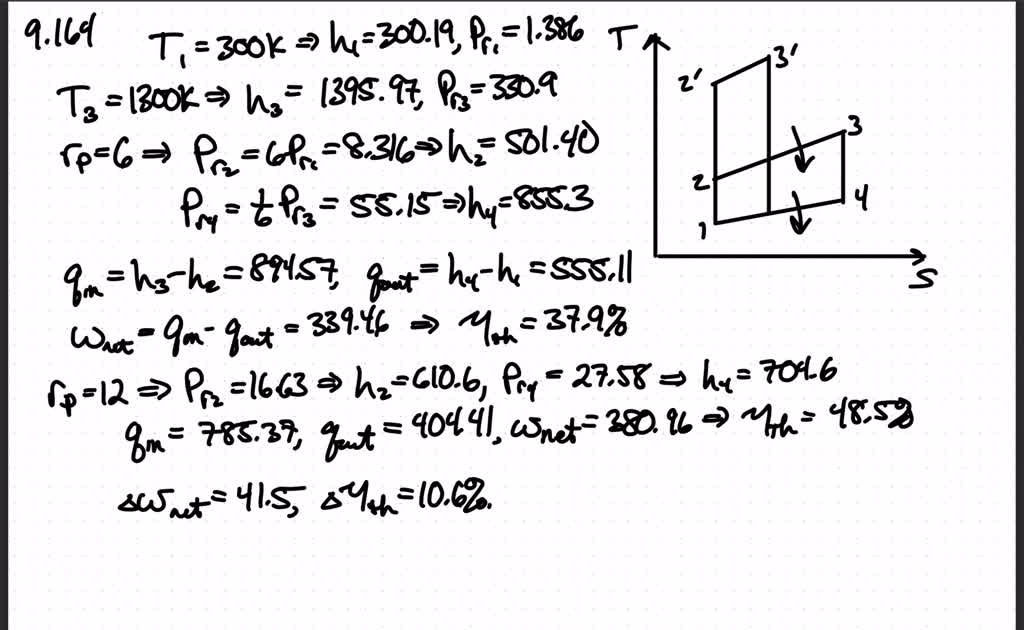 9.164 T₁ = 300K ⇒ h₁ = 300.19, Pr₁ = 1.386
T₃ = 1300K ⇒ h₃ = 1395.97, Pr₃ = 330.9
rp = 6 ⇒ Pr₂ = 6Pr₁ = 8.316 ⇒ h₂ = 501.40
Pr₄ = 1/6 Pr₃ = 55.15 ⇒ h₄ = 855.3
qin = h₃ - h₂ = 894.57, qout = h₄ - h₁ = 555.11
Wnet = qin - qout = 339.46 ⇒ ηth = 37.9%
rp = 12 ⇒ Pr₂ = 16.63 ⇒ h₂ = 610.6, Pr₄ = 27.58 ⇒ h₄ = 704.6
qin = 785.37, qout = 404.41, wnet = 380.96 ⇒ ηth = 48.5%
ΔWnet = 41.5, Δηth = 10.6%.
T
3'
2'
3
2
4
1
S